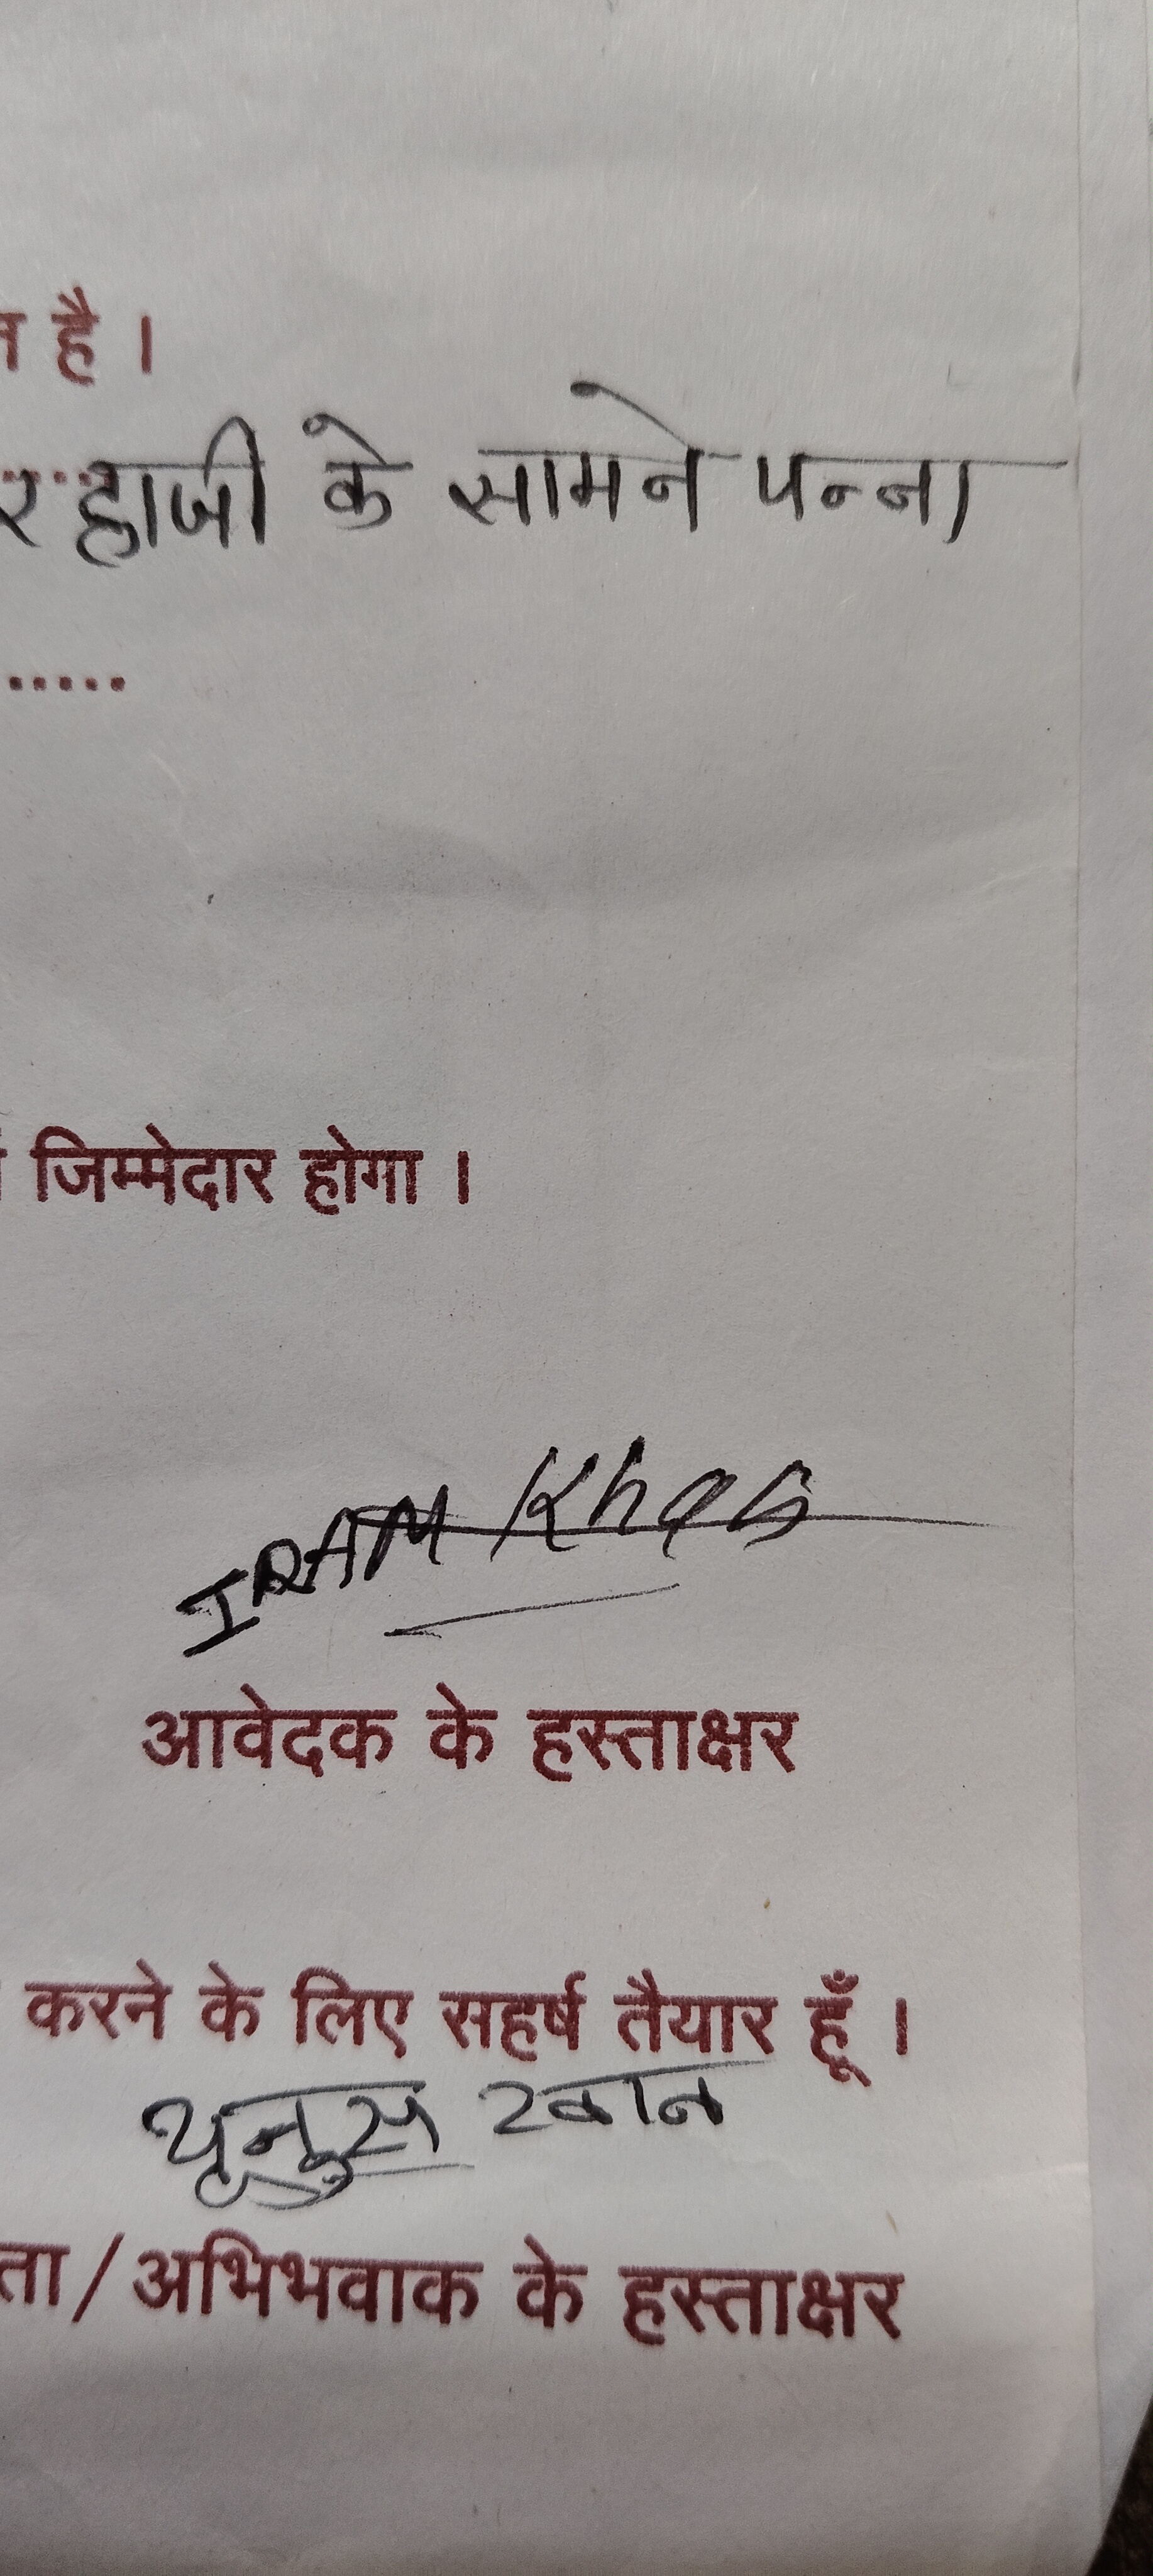 है ।
हाजी के सामने पन्ना
.....
जिम्मेदार होगा ।
IRAM Khan
आवेदक के हस्ताक्षर
करने के लिए सहर्ष तैयार हूँ ।
यूनुस खान
ता/अभिभवाक के हस्ताक्षर